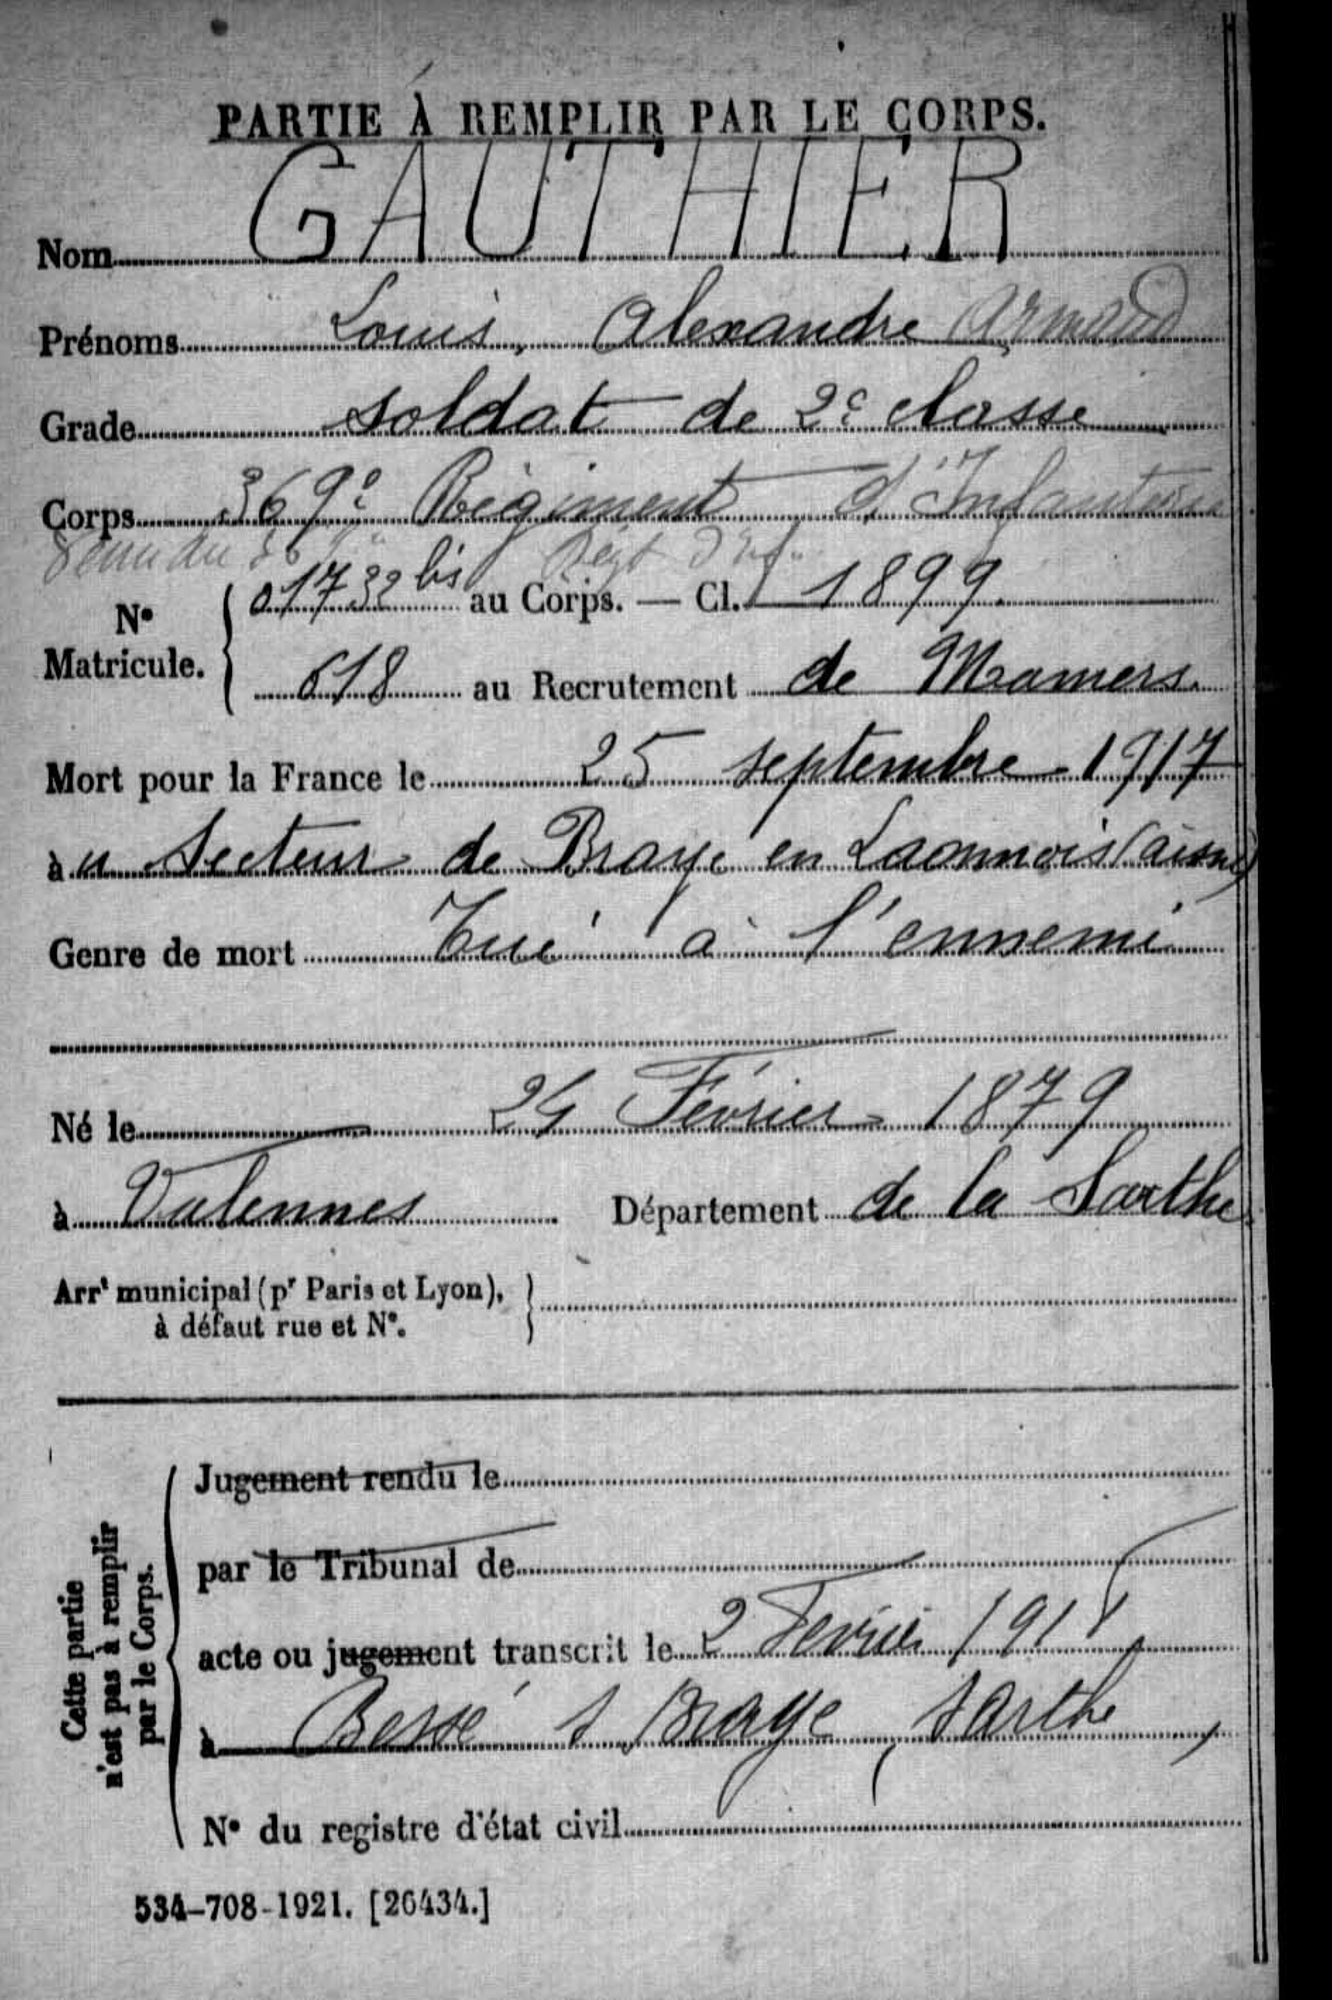 PARTIE À REMPLIR PAR LE CORPS.
Nom GAUTHIER
Prénoms Louis, Alexandre Armand
Grade soldat de 2e classe
Corps 369e Régiment d'Infanterie
Régt d'Inf.
No Matricule. { 01732 bis au Corps. — Cl. 1899.
618 au Recrutement de Mamers.
Mort pour la France le 25 septembre 1917
à u secteur de Braye en Laonnois (aisne)
Genre de mort Tué à l'ennemi
Né le 24 Février 1879
à Valennes Département de la Sarthe
Arrt municipal (pr Paris et Lyon), }
à défaut rue et No.
Cette partie n'est pas à remplir par le Corps.
Jugement rendu le
par le Tribunal de
acte ou jugement transcrit le 2 Février 1918
à Bessé s Braye, Sarthe
No du registre d'état civil
534-708-1921. [26434.]